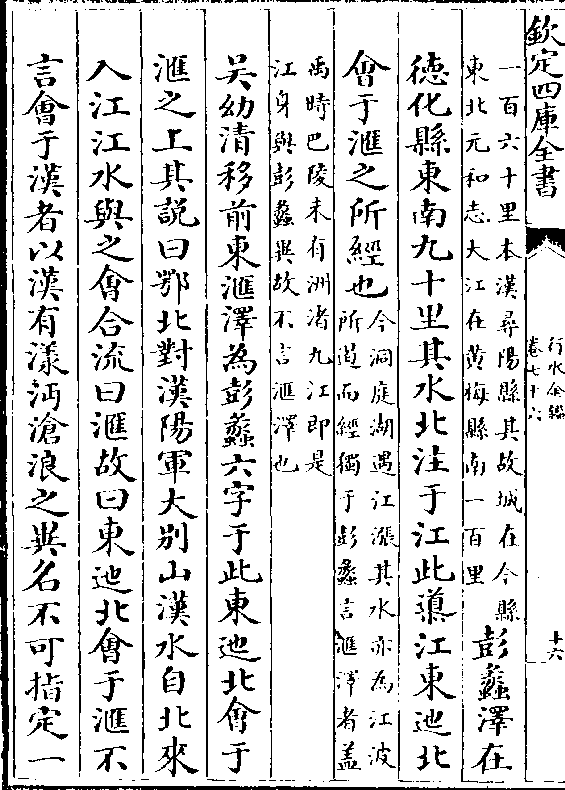 欽定四庫全書
行水金鑑
卷七十六
十六
一百六十里本漢尋陽縣其故城在今縣
東北元和志大江在黄梅縣南一百里
彭蠡澤在
德化縣東南九十里其水北注于江此導江東迆北
會于滙之所經也
今洞庭湖遇江漲其水亦為江波
所過而經獨于彭蠡言滙澤者蓋
禹時巴陵未有洲渚九江即是
江身與彭蠡異故不言滙澤也
吴幼清移前東滙澤為彭蠡六字于此東迆北會于
滙之上其説曰鄂北對漢陽軍大别山漢水自北來
入江江水與之會合流曰滙故曰東迆北會于滙不
言會于漢者以漢有漾沔滄浪之異名不可指定一